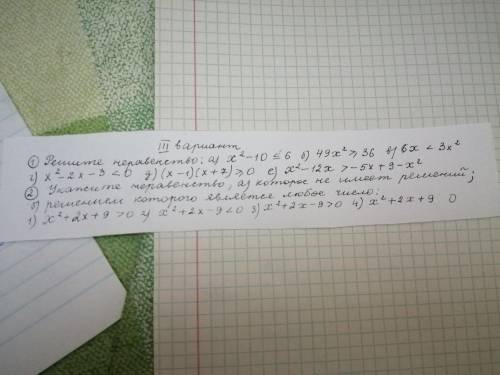 III вариант
① Решите неравенство: а) x²-10 ≤ 6 б) 49x² ≥ 36 в) 6x < 3x²
г) x²-2x-3<0 д) (x-1)(x+7)≥0 е) x²-12x>-5x+9-x²
② Укажите неравенство, а) которое не имеет решений;
б) решением которого является любое число:
1) x²+2x+9>0 2) x²+2x-9<0 3) x²+2x-9>0 4) x²+2x+9 0